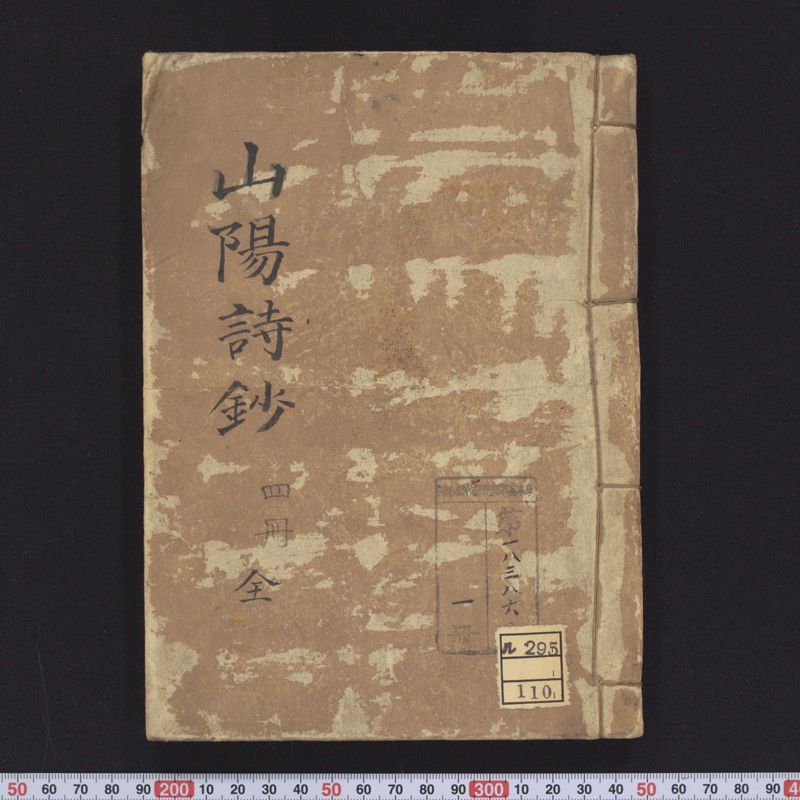 山陽詩鈔
四冊
全
第一八三八六
一冊
ル 295
110
50 60 70 80 90 200 10 20 30 40 50 60 70 80 90 300 10 20 30 40 50 60 70 80 90